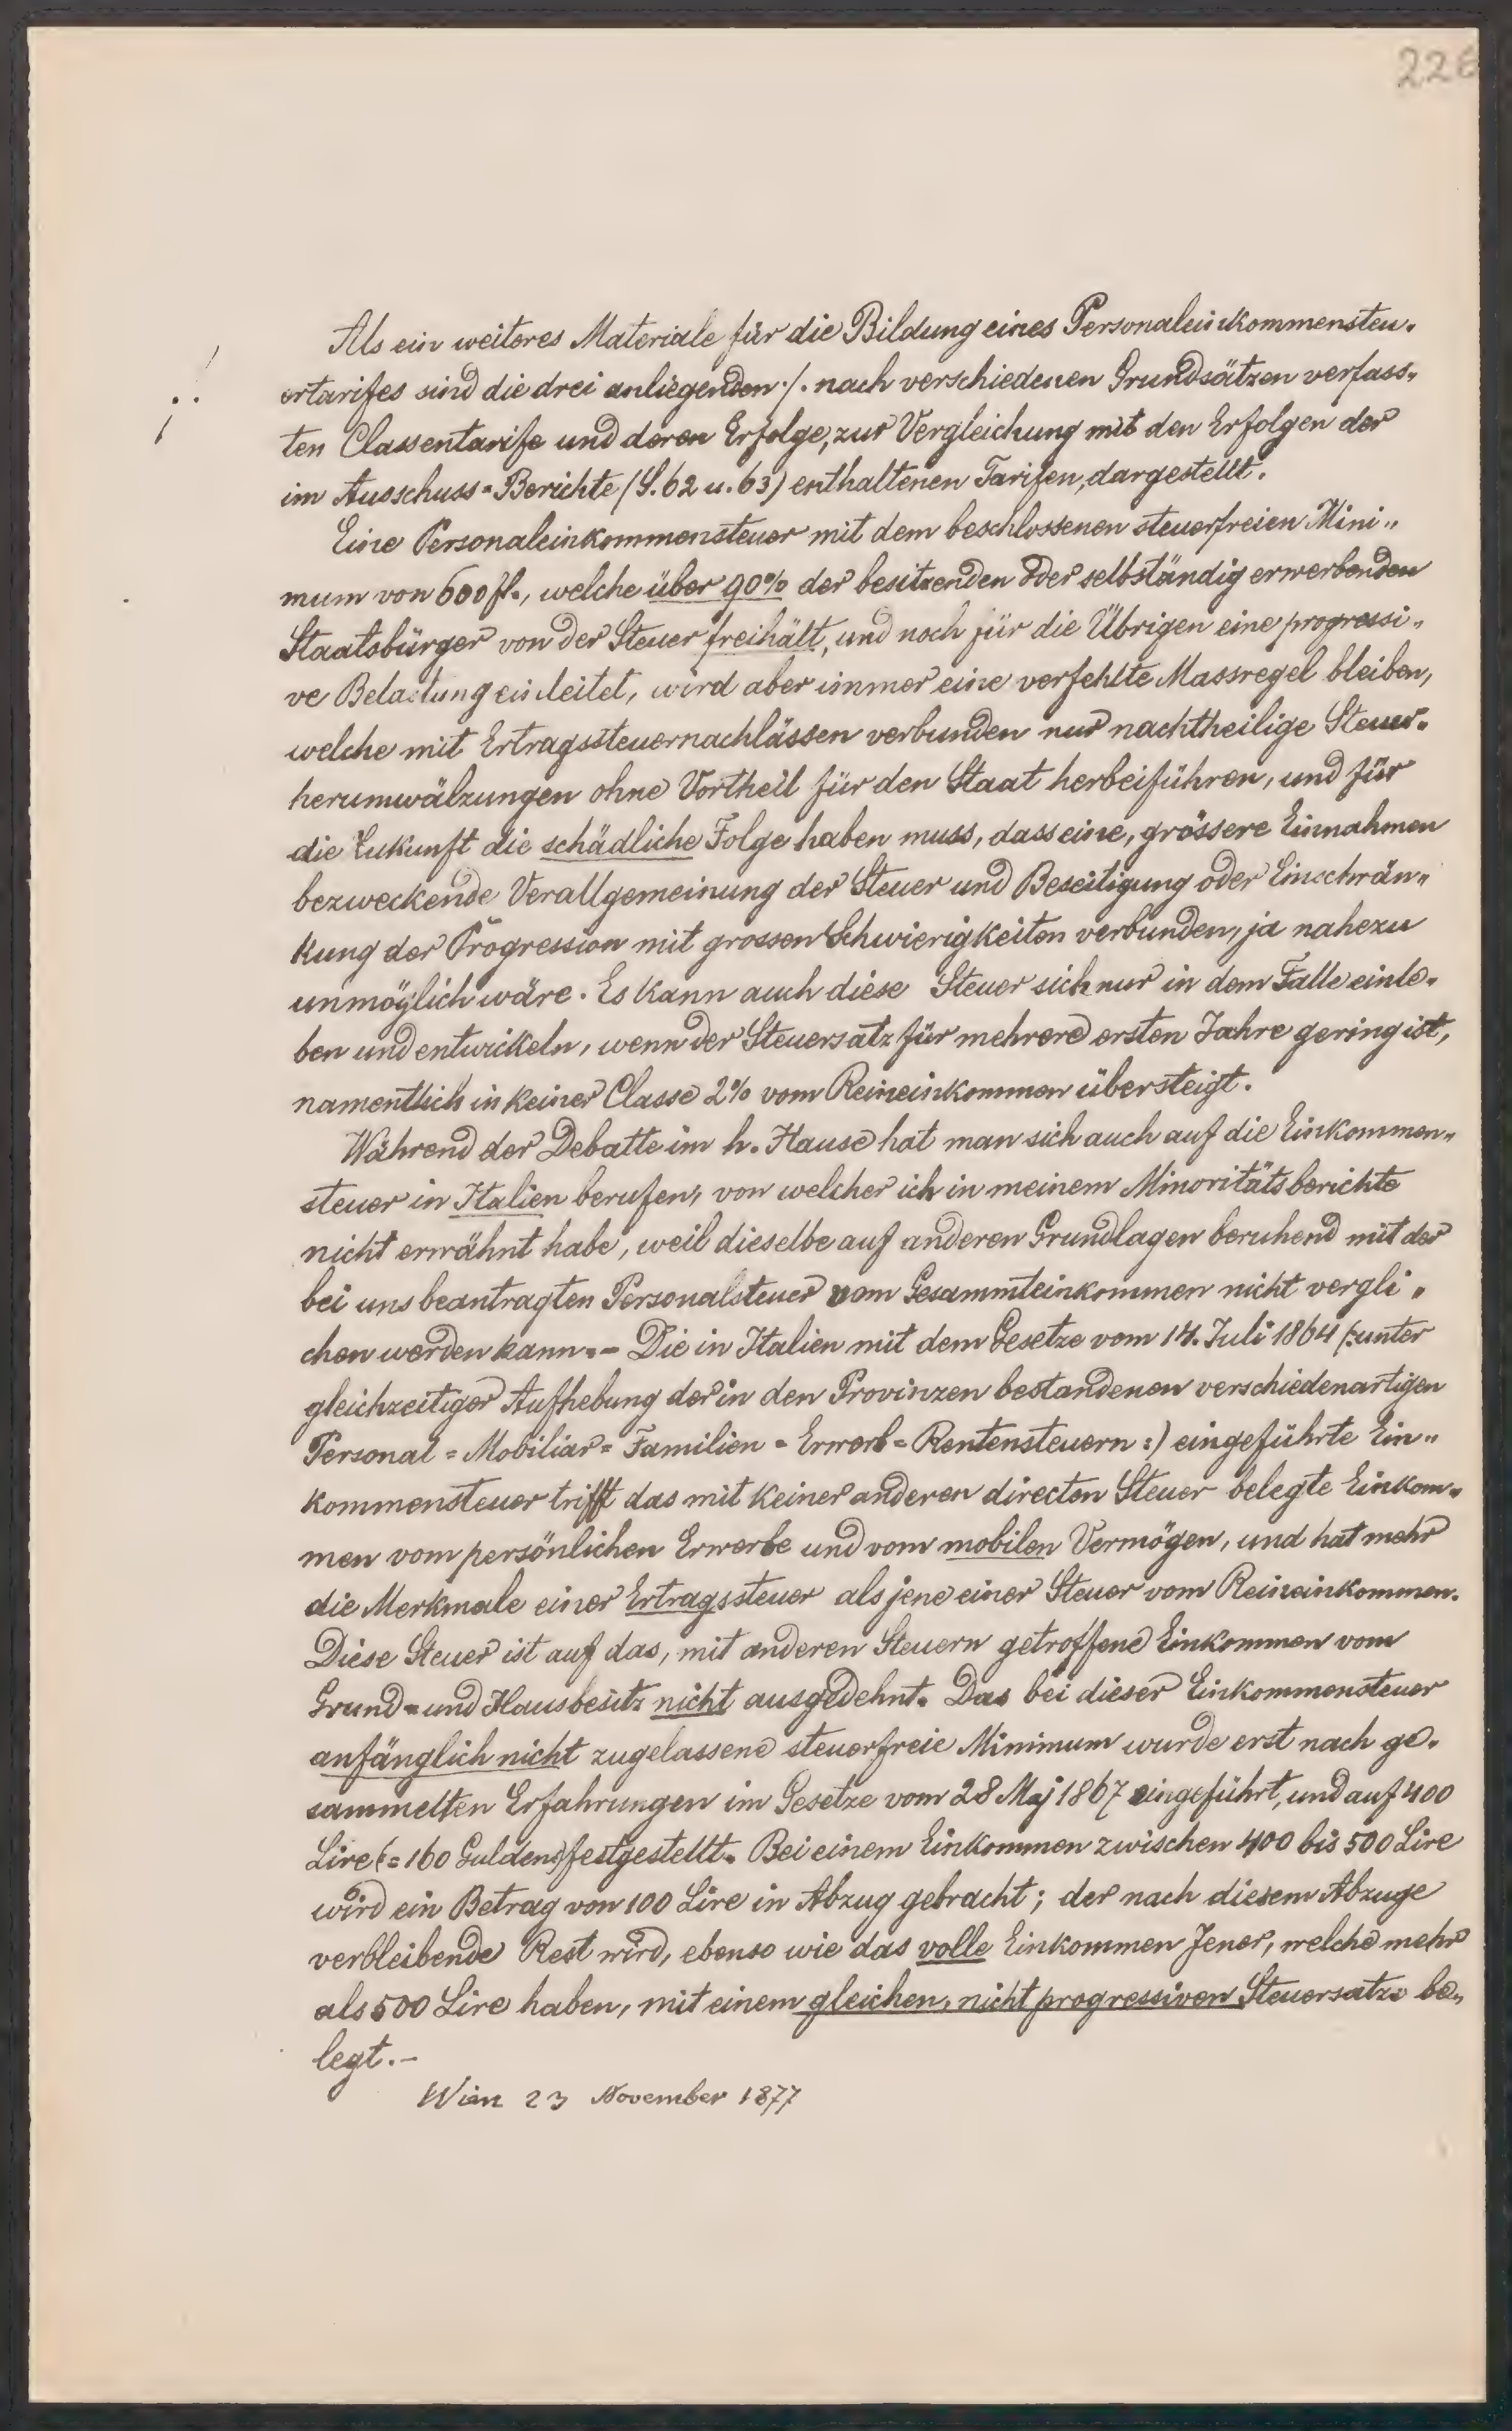 226
Als ein weiteres Materiale für die Bildung eines Personaleinkommensteu-
ertarifes sind die drei anliegenden ·/. nach verschiedenen Grundsätzen verfass-
ten Classentarife und deren Erfolge, zur Vergleichung mit den Erfolgen der
im Ausschuss=Berichte (S. 62 u. 63) enthaltenen Tarifen, dargestellt.
Eine Personaleinkommensteuer mit dem beschlossenen steuerfreien Mini-
mum von 600 fl., welche über 90% der besitzenden oder selbständig erwerbenden
Staatsbürger von der Steuer freihält, und noch für die Übrigen eine progressi-
ve Belastung einleitet, wird aber immer eine verfehlte Massregel bleiben,
welche mit Ertragssteuernachlässen verbunden nur nachtheilige Steuer-
herumwälzungen ohne Vortheil für den Staat herbeiführen, und für
die Zukunft die schädliche Folge haben muss, dass eine, grössere Einnahmen
bezweckende Verallgemeinung der Steuer und Beseitigung oder Einschrän-
kung der Progression mit grossen Schwierigkeiten verbunden, ja nahezu
unmöglich wäre. Es kann auch diese Steuer sich nur in dem Falle einle-
ben und entwickeln, wenn der Steuersatz für mehrere ersten Jahre gering ist,
namentlich in keiner Classe 2% vom Reineinkommen übersteigt.
Während der Debatte im h. Hause hat man sich auch auf die Einkommen-
steuer in Italien berufen, von welcher ich in meinem Minoritätsberichte
nicht erwähnt habe, weil dieselbe auf anderen Grundlagen beruhend mit der
bei uns beantragten Personalsteuer vom Gesammteinkommen nicht vergli-
chen werden kann. – Die in Italien mit dem Gesetze vom 14. Juli 1864 (: unter
gleichzeitiger Aufhebung der in den Provinzen bestandenen verschiedenartigen
Personal = Mobiliar = Familien = Erwerb = Rentensteuern :) eingeführte Ein-
kommensteuer trifft das mit keiner anderen directen Steuer belegte Einkom-
men vom persönlichen Erwerbe und vom mobilen Vermögen, und hat mehr
die Merkmale einer Ertragssteuer als jene einer Steuer vom Reineinkommen.
Diese Steuer ist auf das, mit anderen Steuern getroffene Einkommen vom
Grund = und Hausbesitz nicht ausgedehnt. Das bei dieser Einkommensteuer
anfänglich nicht zugelassene steuerfreie Minimum wurde erst nach ge-
sammelten Erfahrungen im Gesetze vom 28 Maj 1867 eingeführt, und auf 400
Lire (= 160 Gulden) festgestellt. Bei einem Einkommen zwischen 400 bis 500 Lire
wird ein Betrag von 100 Lire in Abzug gebracht; der nach diesem Abzuge
verbleibende Rest wird, ebenso wie das volle Einkommen Jener, welche mehr
als 500 Lire haben, mit einem gleichen, nicht progressiven Steuersatze be-
legt. –
Wien 23 November 1877